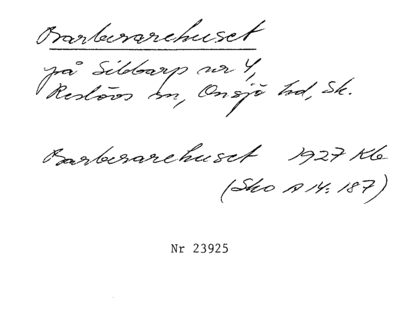 Barberarehuset
på Sibbarp nr 4,
Reslövs sn, Onsjö hd, Sk.
Barberarehuset 1927 Kb
(Sko A 14: 187)
Nr 23925